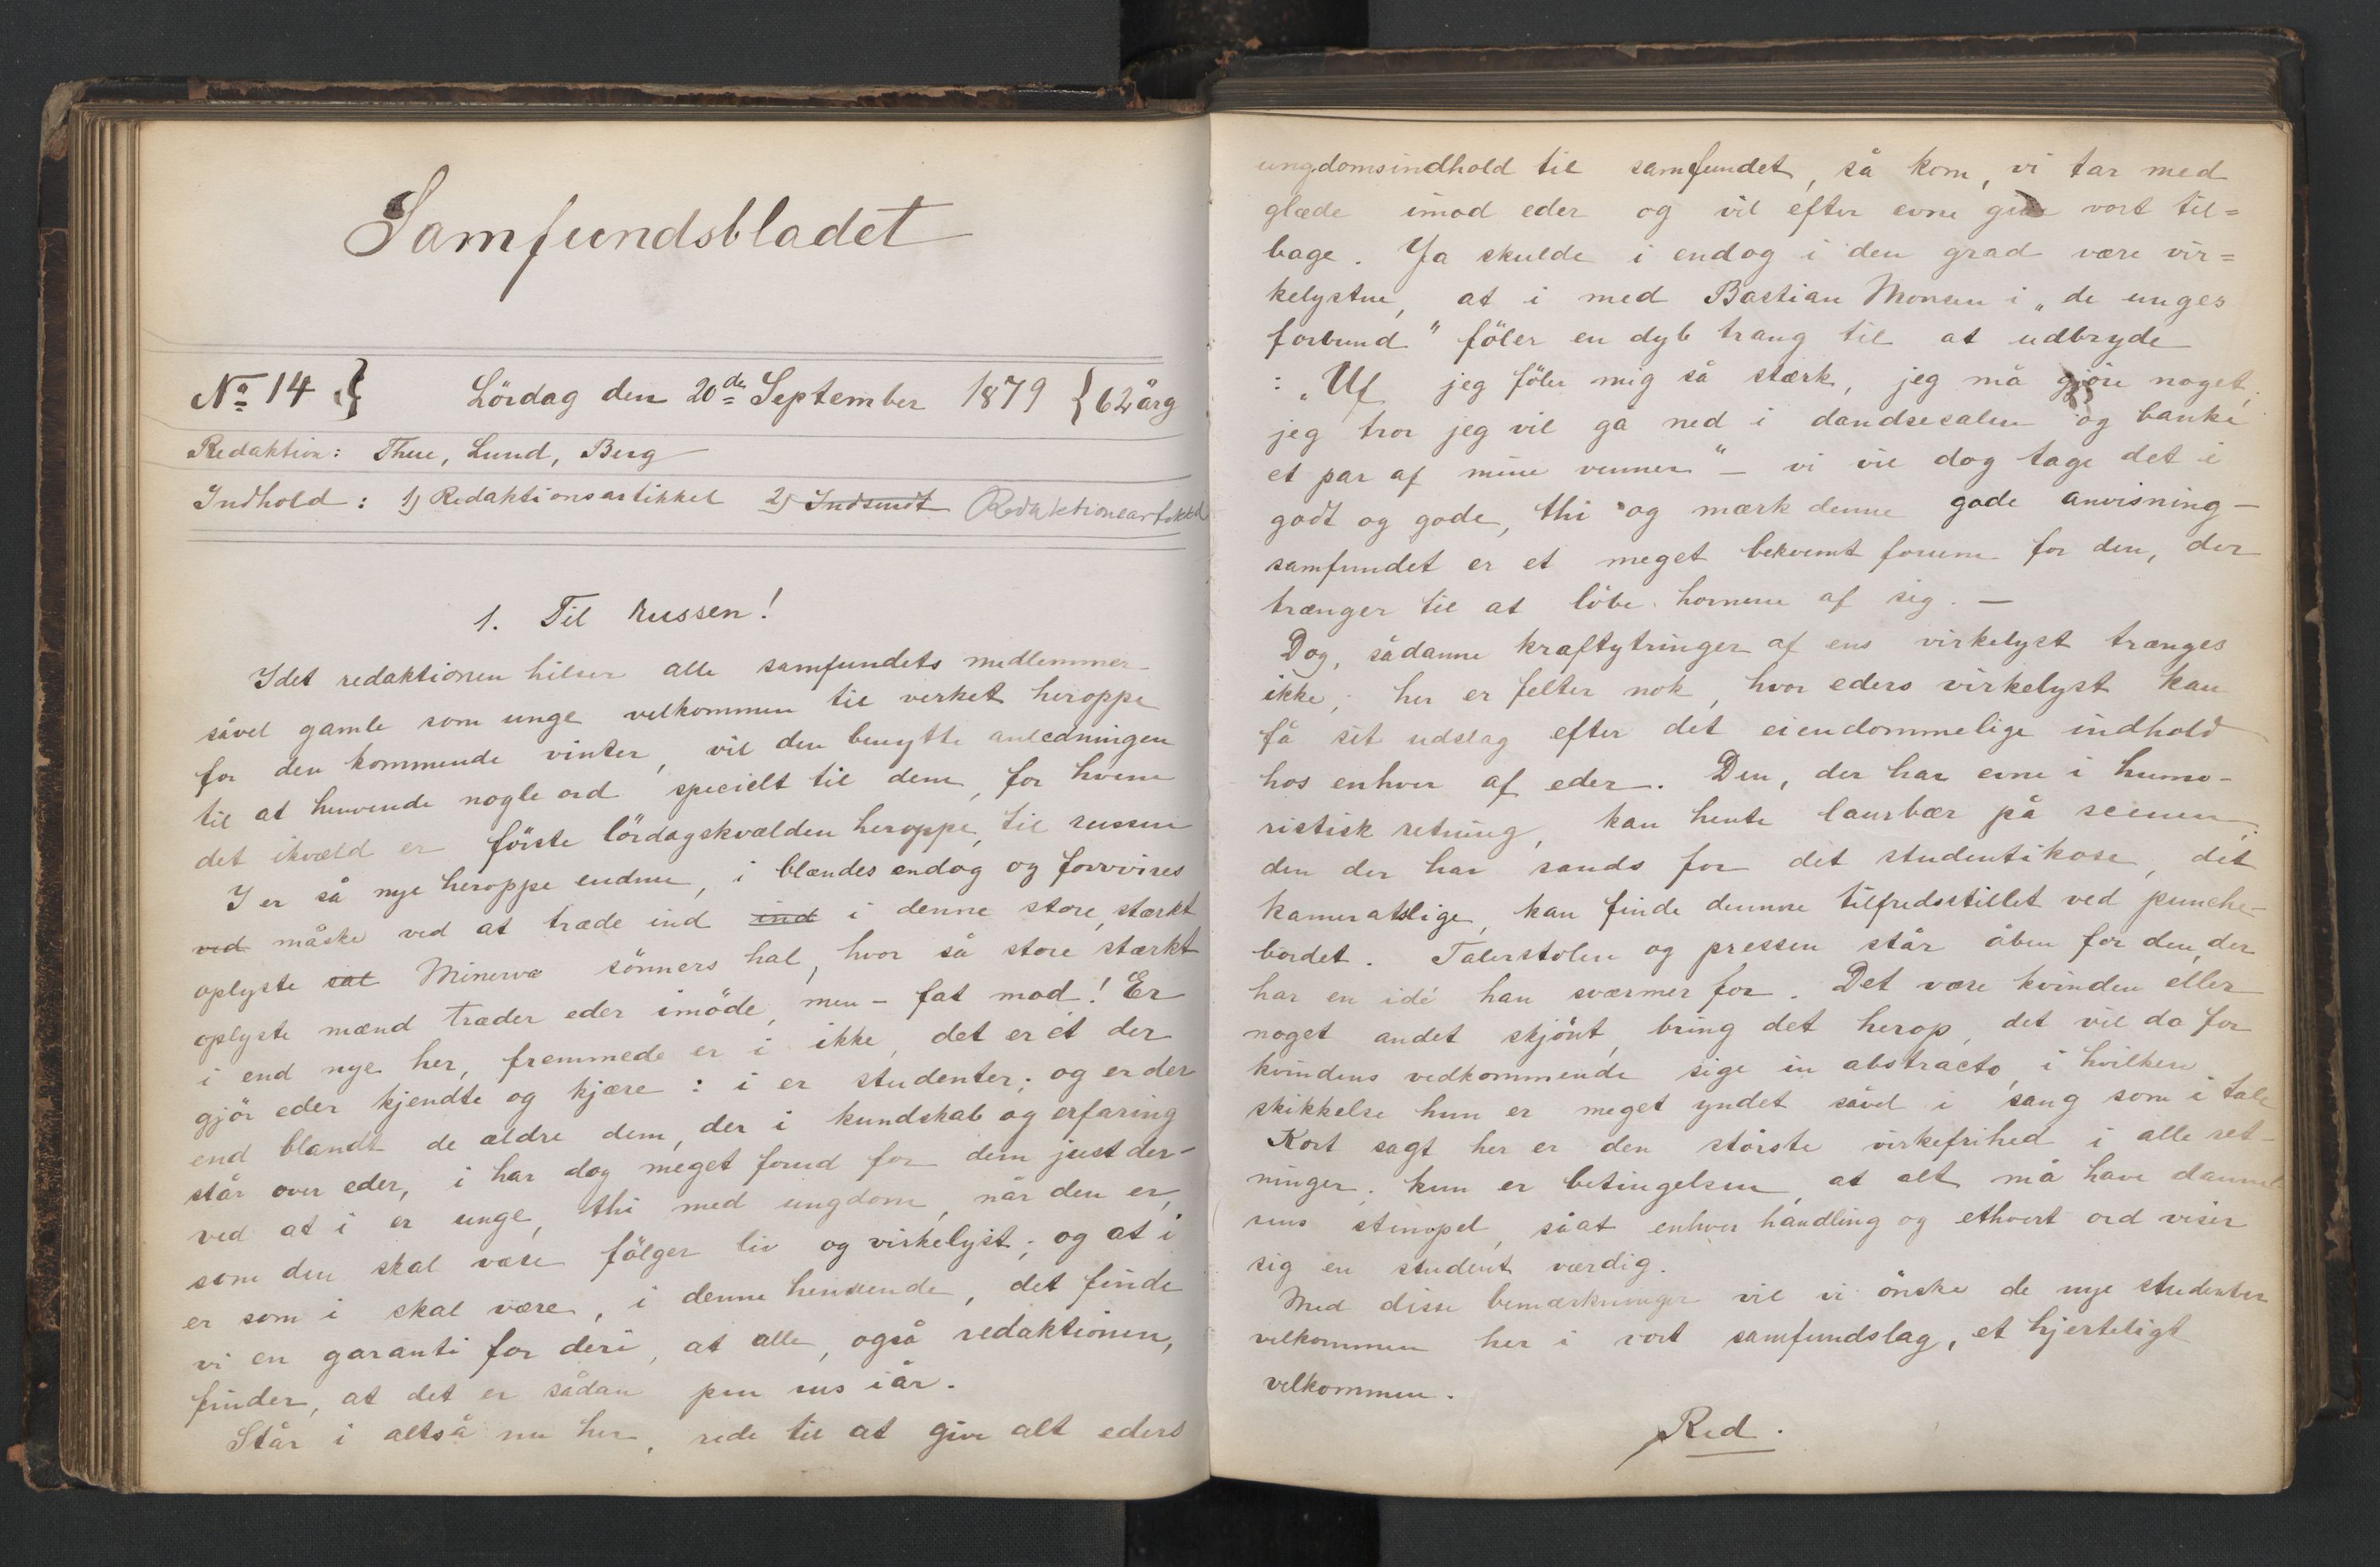 Samfundsbladet
No 14 } Lördag den 20de September 1879 { 62 årg
Redaktion: Thue, Lund, Berg
Indhold: 1) Redaktionsartikkel 2) Indsendt Redaktionsartikkel
1. Til Russen!
Idet redaktionen hilser alle samfundets medlemmer
såvel gamle som unge velkommen til verket heroppe
for den kommende vinter, vil den benytte anledningen
til at henvende nogle ord specielt til dem, for hvem
det ikvæld er förste lördagskvælden heroppe, til russen
I er så nye heroppe endnu, i blændes endog og forvires
ved måske ved at træde ind ind i denne store, stærkt
oplyste sal Minervæ sönners hal, hvor så store stærkt
oplyste mænd træder eder imöde, men - fat mod! Er
i end nye her, fremmede er i ikke, det er ét der
gjör eder kjendte og kjære: i er studenter; og er der
end blandt de ældre dem, der i kundskab og erfaring
står over eder, i har dog meget forud for dem just der-
ved at i er unge, thi med ungdom, når den er,
som den skal være fölger liv og virkelyst; og at i
er som i skal være, i denne henseende, det finde
vi en garanti for deri, at alle, også redaktionen,
finder, at det er sådan pen rus iår.
Står i altså nu her, rede til at give alt eders
ungdomsindhold til samfundet, så kom, vi tar med
glæde imod eder og vil efter evne give vort til=
bage. Ja skulde i endog i den grad være vir=
kelystne, at i med Bastian Monsen i „de unges
forbund" föler en dyb trang til at udbryde
: „Uf jeg föler mig så stærk, jeg må gjöre noget,
jeg tror jeg vil gå ned i dandsesalen og banke
et par af mine venner" - vi vil dog tage det i
godt og gode, thi og mærk denne gode anvisning -
samfundet er et meget bekvemt forum for den, der
trænger til at löbe hornene af sig. -
Dog, sådanne kraftytringer af ens virkelyst trænges
ikke; her er felter nok, hvor eders virkelyst kan
få sit udslag efter det eiendommelige indhold
hos enhver af eder. Den, der har evne i humo-
ristisk retning, kan hente laurbær på scenen,
den der har sands for det studentikose, det
kameratslige, kan finde denne tilfredsstillet ved punche-
bordet. Talerstolen og pressen står åben for den, der
har en idé han sværmer for. Det være kvinden eller
noget andet skjönt, bring det herop, det vil da for
kvindens vedkommende sige in abstracto, i hvilken
skikkelse hun er meget yndet såvel i sang som i tale
Kort sagt her er den störste virkefrihed i alle ret-
ninger; kun er betingelsen, at alt må have dannel
sens stempel, såat enhver handling og ethvert ord viser
sig en student værdig.
Med disse bemærkninger vil vi önske de nye studenter
velkommen her i vort samfundslag, et hjerteligt
velkommen.
Red.